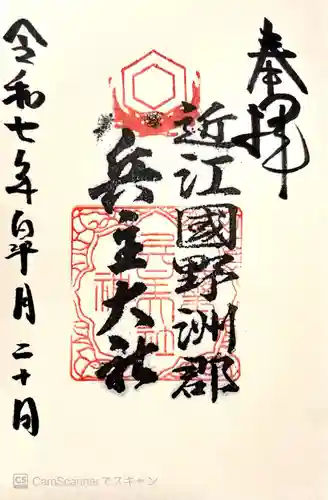 奉拝
近江國野洲郡
兵主大社
令和七年 月二十日
CS CamScannerでスキャン